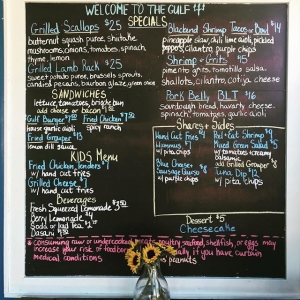 WELCOME TO THE GULF
SPECIALS
Grilled Scallops $25
butternut squash puree, shiitake
mushrooms, onions, tomatoes, spinach,
thyme, lemon
Grilled Lamb Rack $25
sweet potato puree, brussels sprouts,
candied pecans, bourbon glaze, green onion
SANDWICHES
lettuce, tomatoes, bun
add cheese or bacon
Gulf Burger
house garlic aioli
Fried Chicken
spicy ranch
Fried Grouper
lemon dill sauce
KIDS Menu
Fried Chicken Tenders $7
w/ hand cut fries
Grilled Cheese
w/ hand cut fries
Beverages
Fresh Squeezed Lemonade
Berry Lemonade $4
Soda or Iced Tea $2
Dasani
Blackened Shrimp Tacos or Bowl $14
pineapple slaw, chili lime aioli, pickled
poppers, cilantro, purple chips
Shrimp & Grits $15
pimento grits, tomatillo salsa,
shallots, cilantro, cotija cheese
Pork Belly BLT $16
sourdough bread, havarty cheese,
spinach, tomatoes, garlic aioli
Shares & Sides
Hand Cut Fries
Hummus $7
w/ pita chips
Blue Cheese
w/ purple chips
Fried Shrimp
Mixed Green Salad $5
w/ tomatoes, creamy
balsamic
add Grilled Grouper $8
Tuna Dip $12
w/ pita chips
Dessert $5
Cheesecake
* consuming raw or undercooked meats, poultry, seafood, shellfish, or eggs may
increase your risk of if you have certain
medical conditions peanuts